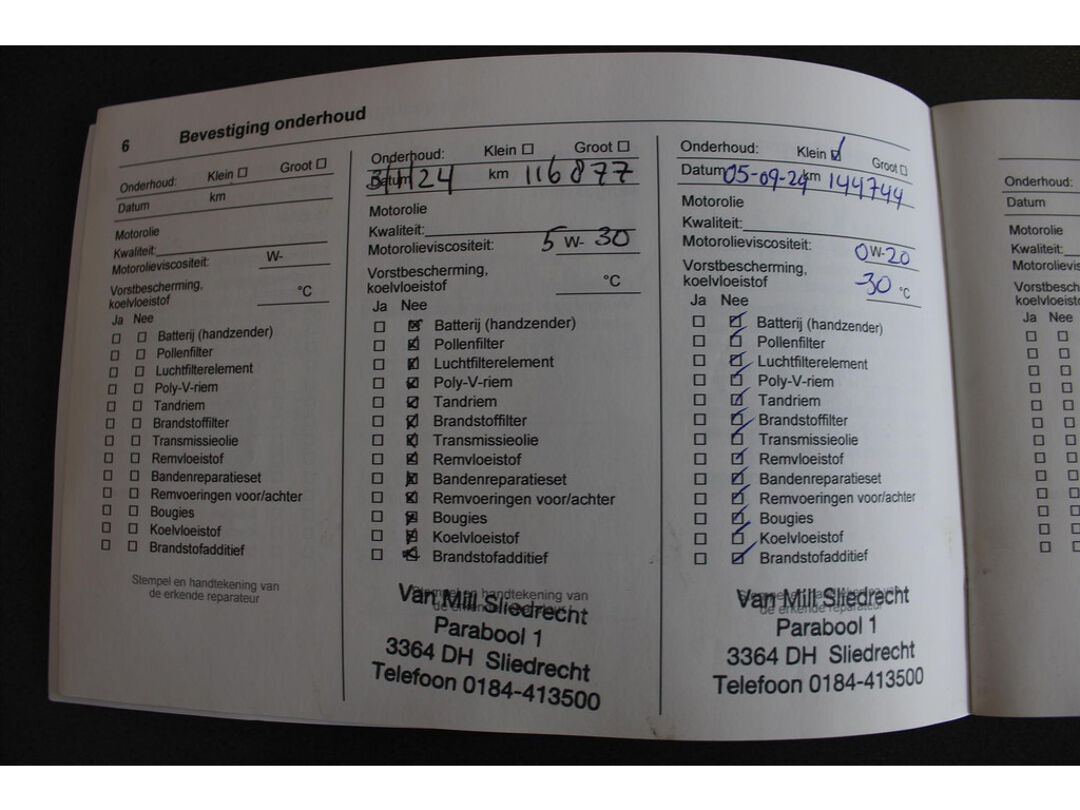 6 Bevestiging onderhoud
Onderhoud: Klein Groot
Datum km
Motorolie
Kwaliteit:
Motorolieviscositeit: W-
Vorstbescherming,
koelvloeistof °C
Ja Nee
Batterij (handzender)
Pollenfilter
Luchtfilterelement
Poly-V-riem
Tandriem
Brandstoffilter
Transmissieolie
Remvloeistof
Bandenreparatieset
Remvoeringen voor/achter
Bougies
Koelvloeistof
Brandstofadditief
Stempel en handtekening van
de erkende reparateur
Onderhoud: Klein Groot
Datum 3/1/24 km 116877
Motorolie
Kwaliteit:
Motorolieviscositeit: 5 W- 30
Vorstbescherming,
koelvloeistof °C
Ja Nee
Batterij (handzender)
Pollenfilter
Luchtfilterelement
Poly-V-riem
Tandriem
Brandstoffilter
Transmissieolie
Remvloeistof
Bandenreparatieset
Remvoeringen voor/achter
Bougies
Koelvloeistof
Brandstofadditief
Stempel en handtekening van
de erkende reparateur
Van Mill Sliedrecht
Parabool 1
3364 DH Sliedrecht
Telefoon 0184-413500
Onderhoud: Klein Groot
Datum 05-09-24 km 144744
Motorolie
Kwaliteit:
Motorolieviscositeit: 0 W- 20
Vorstbescherming,
koelvloeistof -30 °C
Ja Nee
Batterij (handzender)
Pollenfilter
Luchtfilterelement
Poly-V-riem
Tandriem
Brandstoffilter
Transmissieolie
Remvloeistof
Bandenreparatieset
Remvoeringen voor/achter
Bougies
Koelvloeistof
Brandstofadditief
Stempel en handtekening van
de erkende reparateur
Van Mill Sliedrecht
Parabool 1
3364 DH Sliedrecht
Telefoon 0184-413500
Onderhoud:
Datum
Motorolie
Kwaliteit:
Motorolievis
Vorstbesch
koelvloeisto
Ja Nee